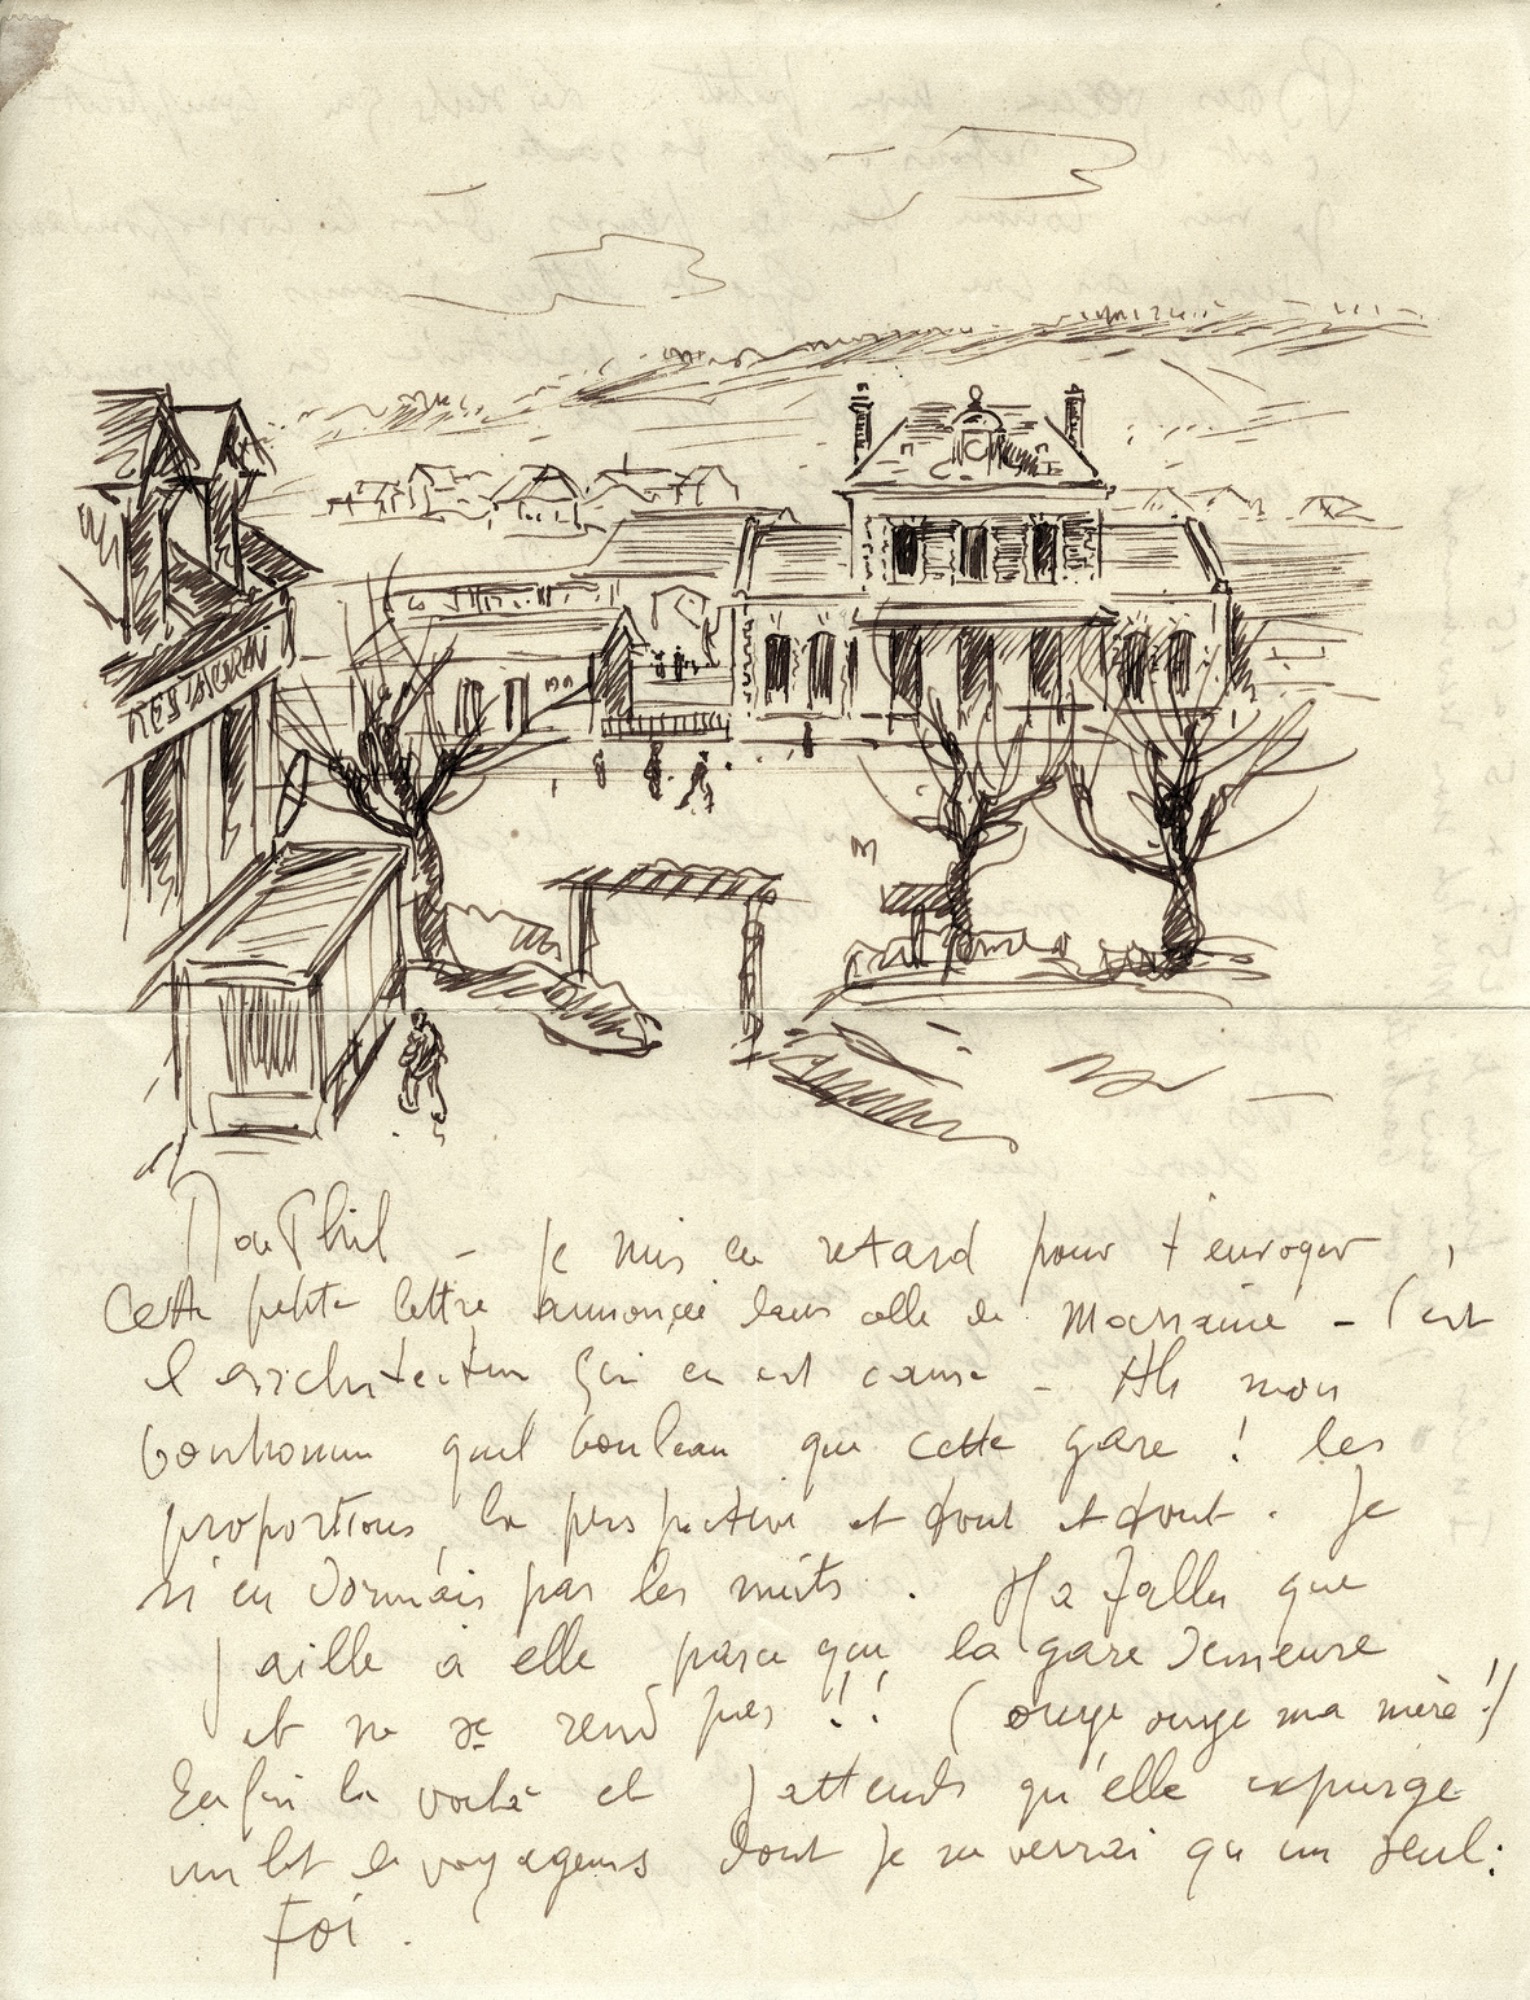 RESTAURAN
Mon Phil - Je suis en retard pour t'envoyer
Cette petite lettre annoncée dans celle de Marraine - C'est
l'architecture qui en est cause - Ah mon
bonhomme quel bouleau que cette gare ! les
proportions, la perspective et tout et tout . Je
n'en dormais pas les nuits . Il a fallu que
j'aille à elle parce que la gare demeure
et ne se rend pas !! (ouye ouye ma mère !)
Enfin la voilà et j'attends qu'elle expurge
un lot de voyageurs dont je ne verrai qu'un seul :
Toi .